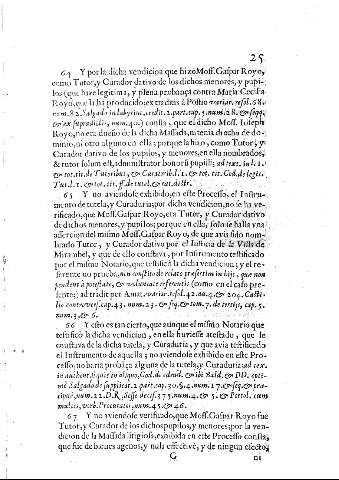 25
64 Y por la dicha vendicion que hizo Moss. Gaspar Royo,
como Tutor, y Curador dativo de los dichos menores, y pupi-
los (que haze legitima, y plena probança contra Maria Cecilia
Royo, que la ha producido ex traditis à Posthio
num. 82. Salgado in labyrint. credit. 2. part. cap. 5. num. 28. & seqq.
& ex supradictis, num. 40.) consta, que el dicho Moss. Ioseph
Royo, no era dueño de la dicha Massada, ni tenia dicho de do-
minio, ni otro alguno en ella; porque la hizo, como Tutor, y
Curador dativo de los pupilos, y menores, en ella nombrados,
& tutor solum est, administrator bonorũ pupilli: ad text. in l. 1.
& tot. tit. de Tutoribus, & Curatrib. l. 1. & tot. tit. Cod. de legit.
Tut. l. 1. & tot. tit. ff. de tutel. & rat. distr.
65 Y no aviendose exhibido, en este Processo, el Instru-
mento de tutela, y Curaduria; por dicha vendicion, no se ha ve-
rificado, que Moss. Gaspar Royo, era Tutor, y Curador dativo
de dichos menores, y pupilos; porque en ella, solo se halla una
assercion del mismo Moss. Gaspar Royo, de que avia sido nom-
brado Tutor, y Curador dativo por el Iusticia de la Villa de
Mirambel, y que de ello constava, por Instrumento testificado
por el mismo Notario, que testificò la dicha vendicion; y el re-
ferente no prueba, nisi constito de relato presertim in hijs, que non
pendent à potestate, & voluntate referentis (como en el caso pre-
sente;) ad tradit per Amat. variar. resol. 42. nu. 4. & 204. Casti-
llo controvers. cap. 43. num. 23. & seq. & tom. 7. de tertijs, cap. 5.
num. 3. & 6.
66 Y esto es tan cierto, que aunque el mismo Notario que
testificò la dicha vendicion, en ella huviesse atestado, que le
constava de la dicha tutela, y Curaduria, y que avia testificado
el Instrumento de aquella; no aviendose exhibido en este Pro-
cesso; no haria probãça alguna de la tutela, y Curaduria: ad tex.
in authent. si quis in aliquo, Cod. de edend. & ibi Bald. & DD. opti-
mè Salgado de supplicat. 2. part. cap. 30. §. 4. num. 17. & seq. & præ-
cipuè, num. 22. D. R. Sesse decis. 375. num. 4. & 5. & Portol. cum
multis, verb. Procurator, num. 45. & 46.
67 Y no aviendose verificado, que Moss. Gaspar Royo fue
Tutor, y Curador de los dichos pupilos, y menores; por la ven-
dicion de la Massada litigiosa, exhibida en este Processo consta,
que fue de bienes agenos, y nula effectivè, y de ningun efecto;
G
ni